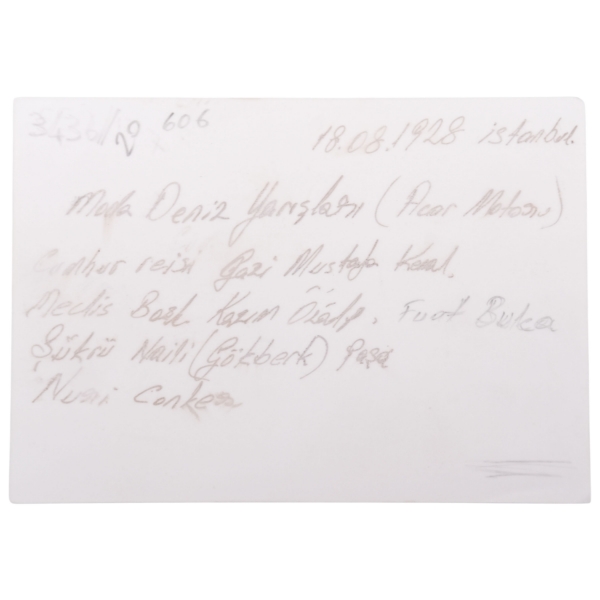 3436/20 606
18.08.1928 istanbul.
Moda Deniz Yarışları (Acar Motoru)
Cumhur reisi Gazi Mustafa Kemal.
Meclis Bask Kazım Özalp. Fuat Bulca
Şükrü Naili (Gökberk) Paşa
Nuri Conker